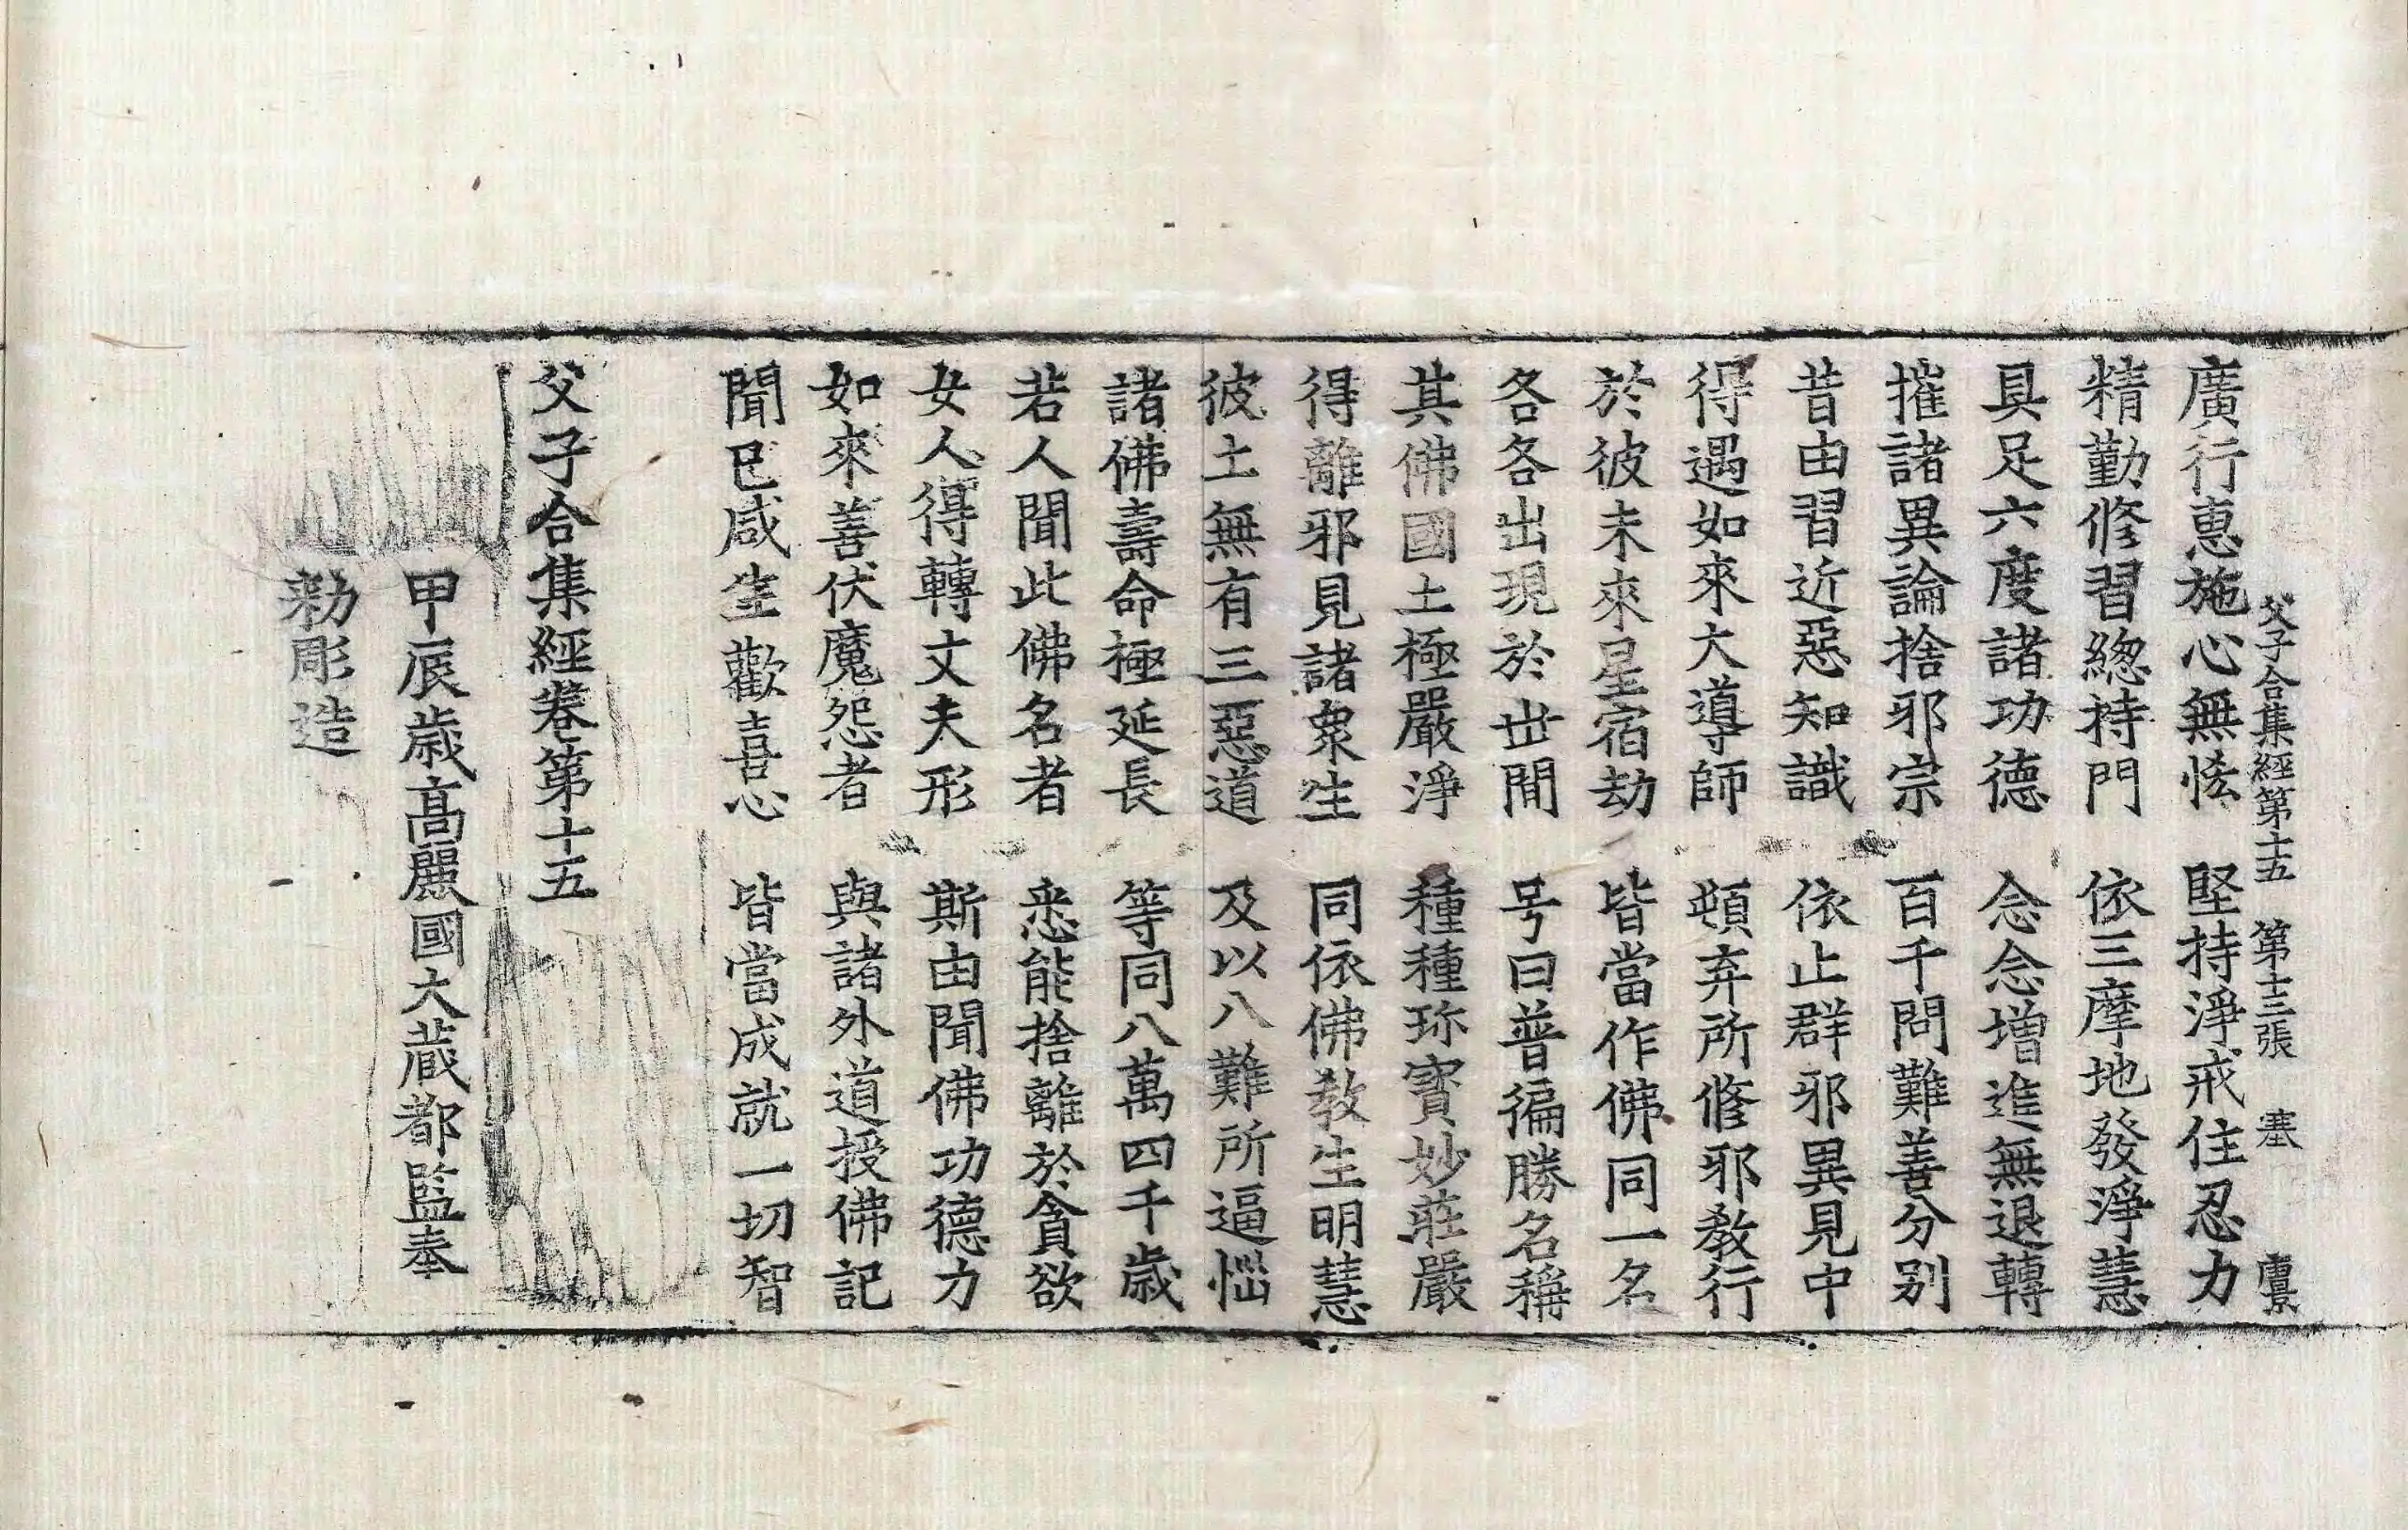 父子合集經第十五　第十三張　塞
廣行惠施心無悋　堅持淨戒住忍力
精勤修習總持門　依三摩地發淨慧
具足六度諸功德　念念增進無退轉
摧諸異論捨邪宗　百千問難善分別
昔由習近惡知識　依止群邪異見中
得遇如來大導師　頓弃所修邪教行
於彼未來星宿劫　皆當作佛同一名
各各出現於世間　号曰普徧勝名稱
其佛國土極嚴淨　種種珎寶妙莊嚴
得離邪見諸衆生　同依佛教生明慧
彼土無有三惡道　及以八難所逼惱
諸佛壽命極延長　等同八萬四千歲
若人聞此佛名者　悉能捨離於貪欲
女人得轉丈夫形　斯由聞佛功德力
如來善伏魔怨者　與諸外道授佛記
聞已咸生歡喜心　皆當成就一切智
父子合集經卷第十五
甲辰歲高麗國大藏都監奉
勅彫造